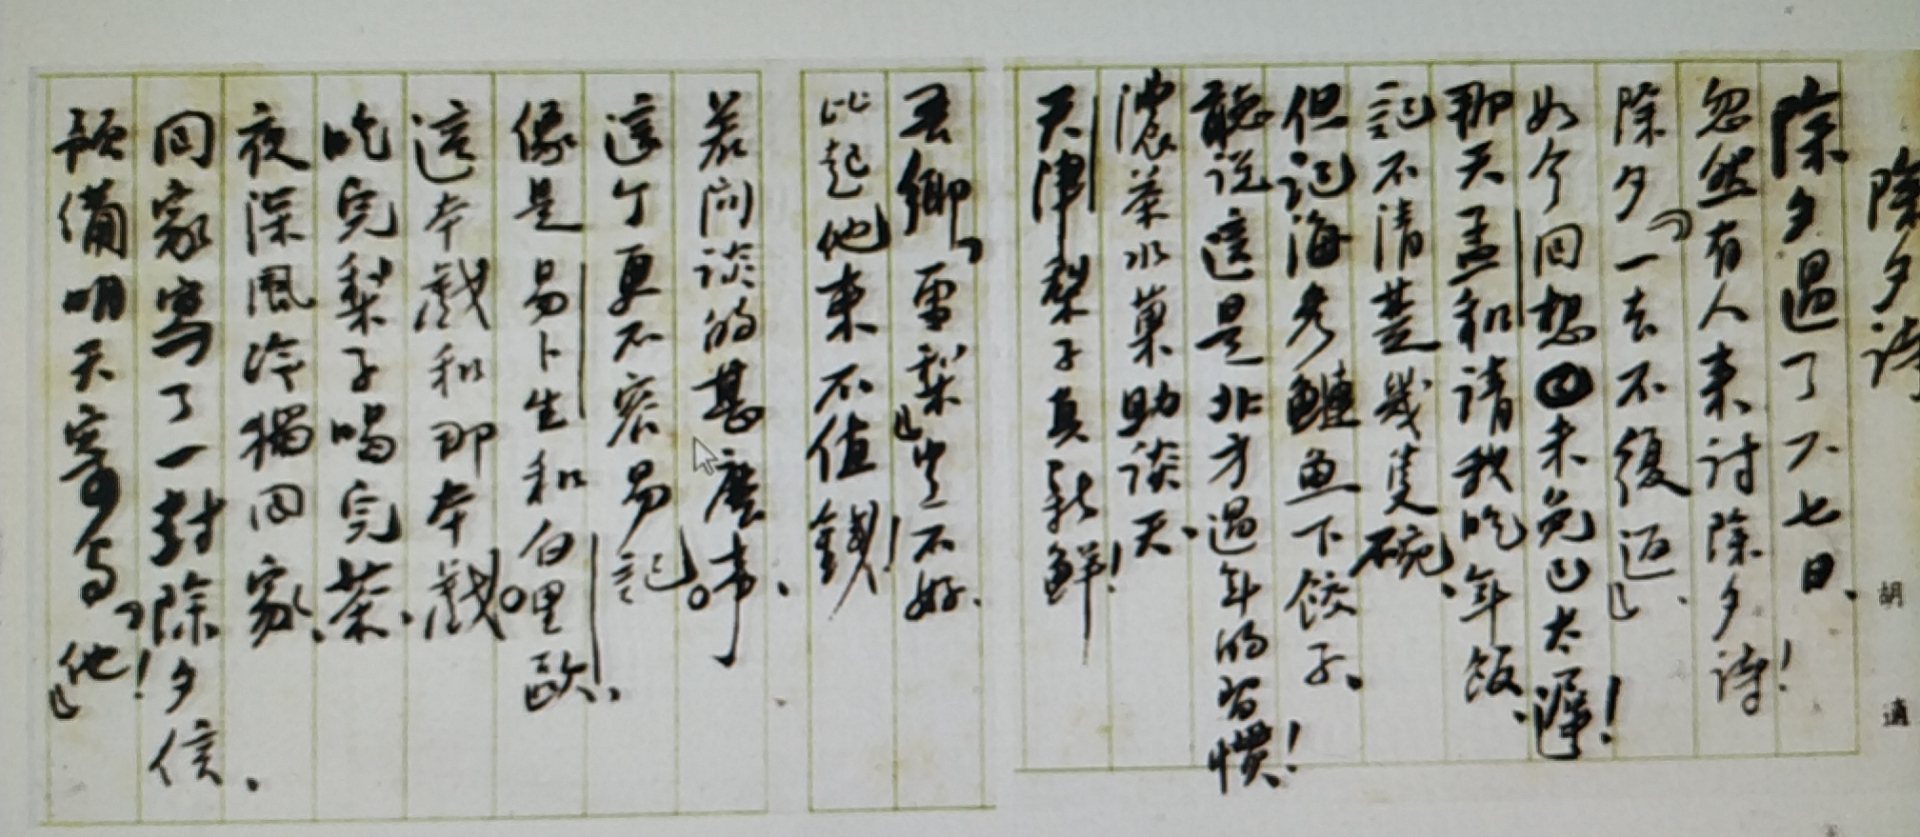 除夕詩
胡適
除夕過了六七日,
忽然有人來討除夕詩!
除夕『一去不復返』,
如今回想未免已太遲!
那天孟和請我吃年飯,
記不清楚幾隻碗,
但記海參鰱魚下餃子,
聽說這是北方過年的習慣!
濃茶水菓助談天,
天津梨子真新鮮!
吾鄉『雪梨』豈不好,
比起他來不值錢!
若問談的甚麼事,
這个更不容易記。
像是易卜生和白里歐,
這本戲和那本戲。
吃完梨子喝完茶,
夜深風冷獨回家,
回家寫了一封除夕信,
預備明天寄与『他』!